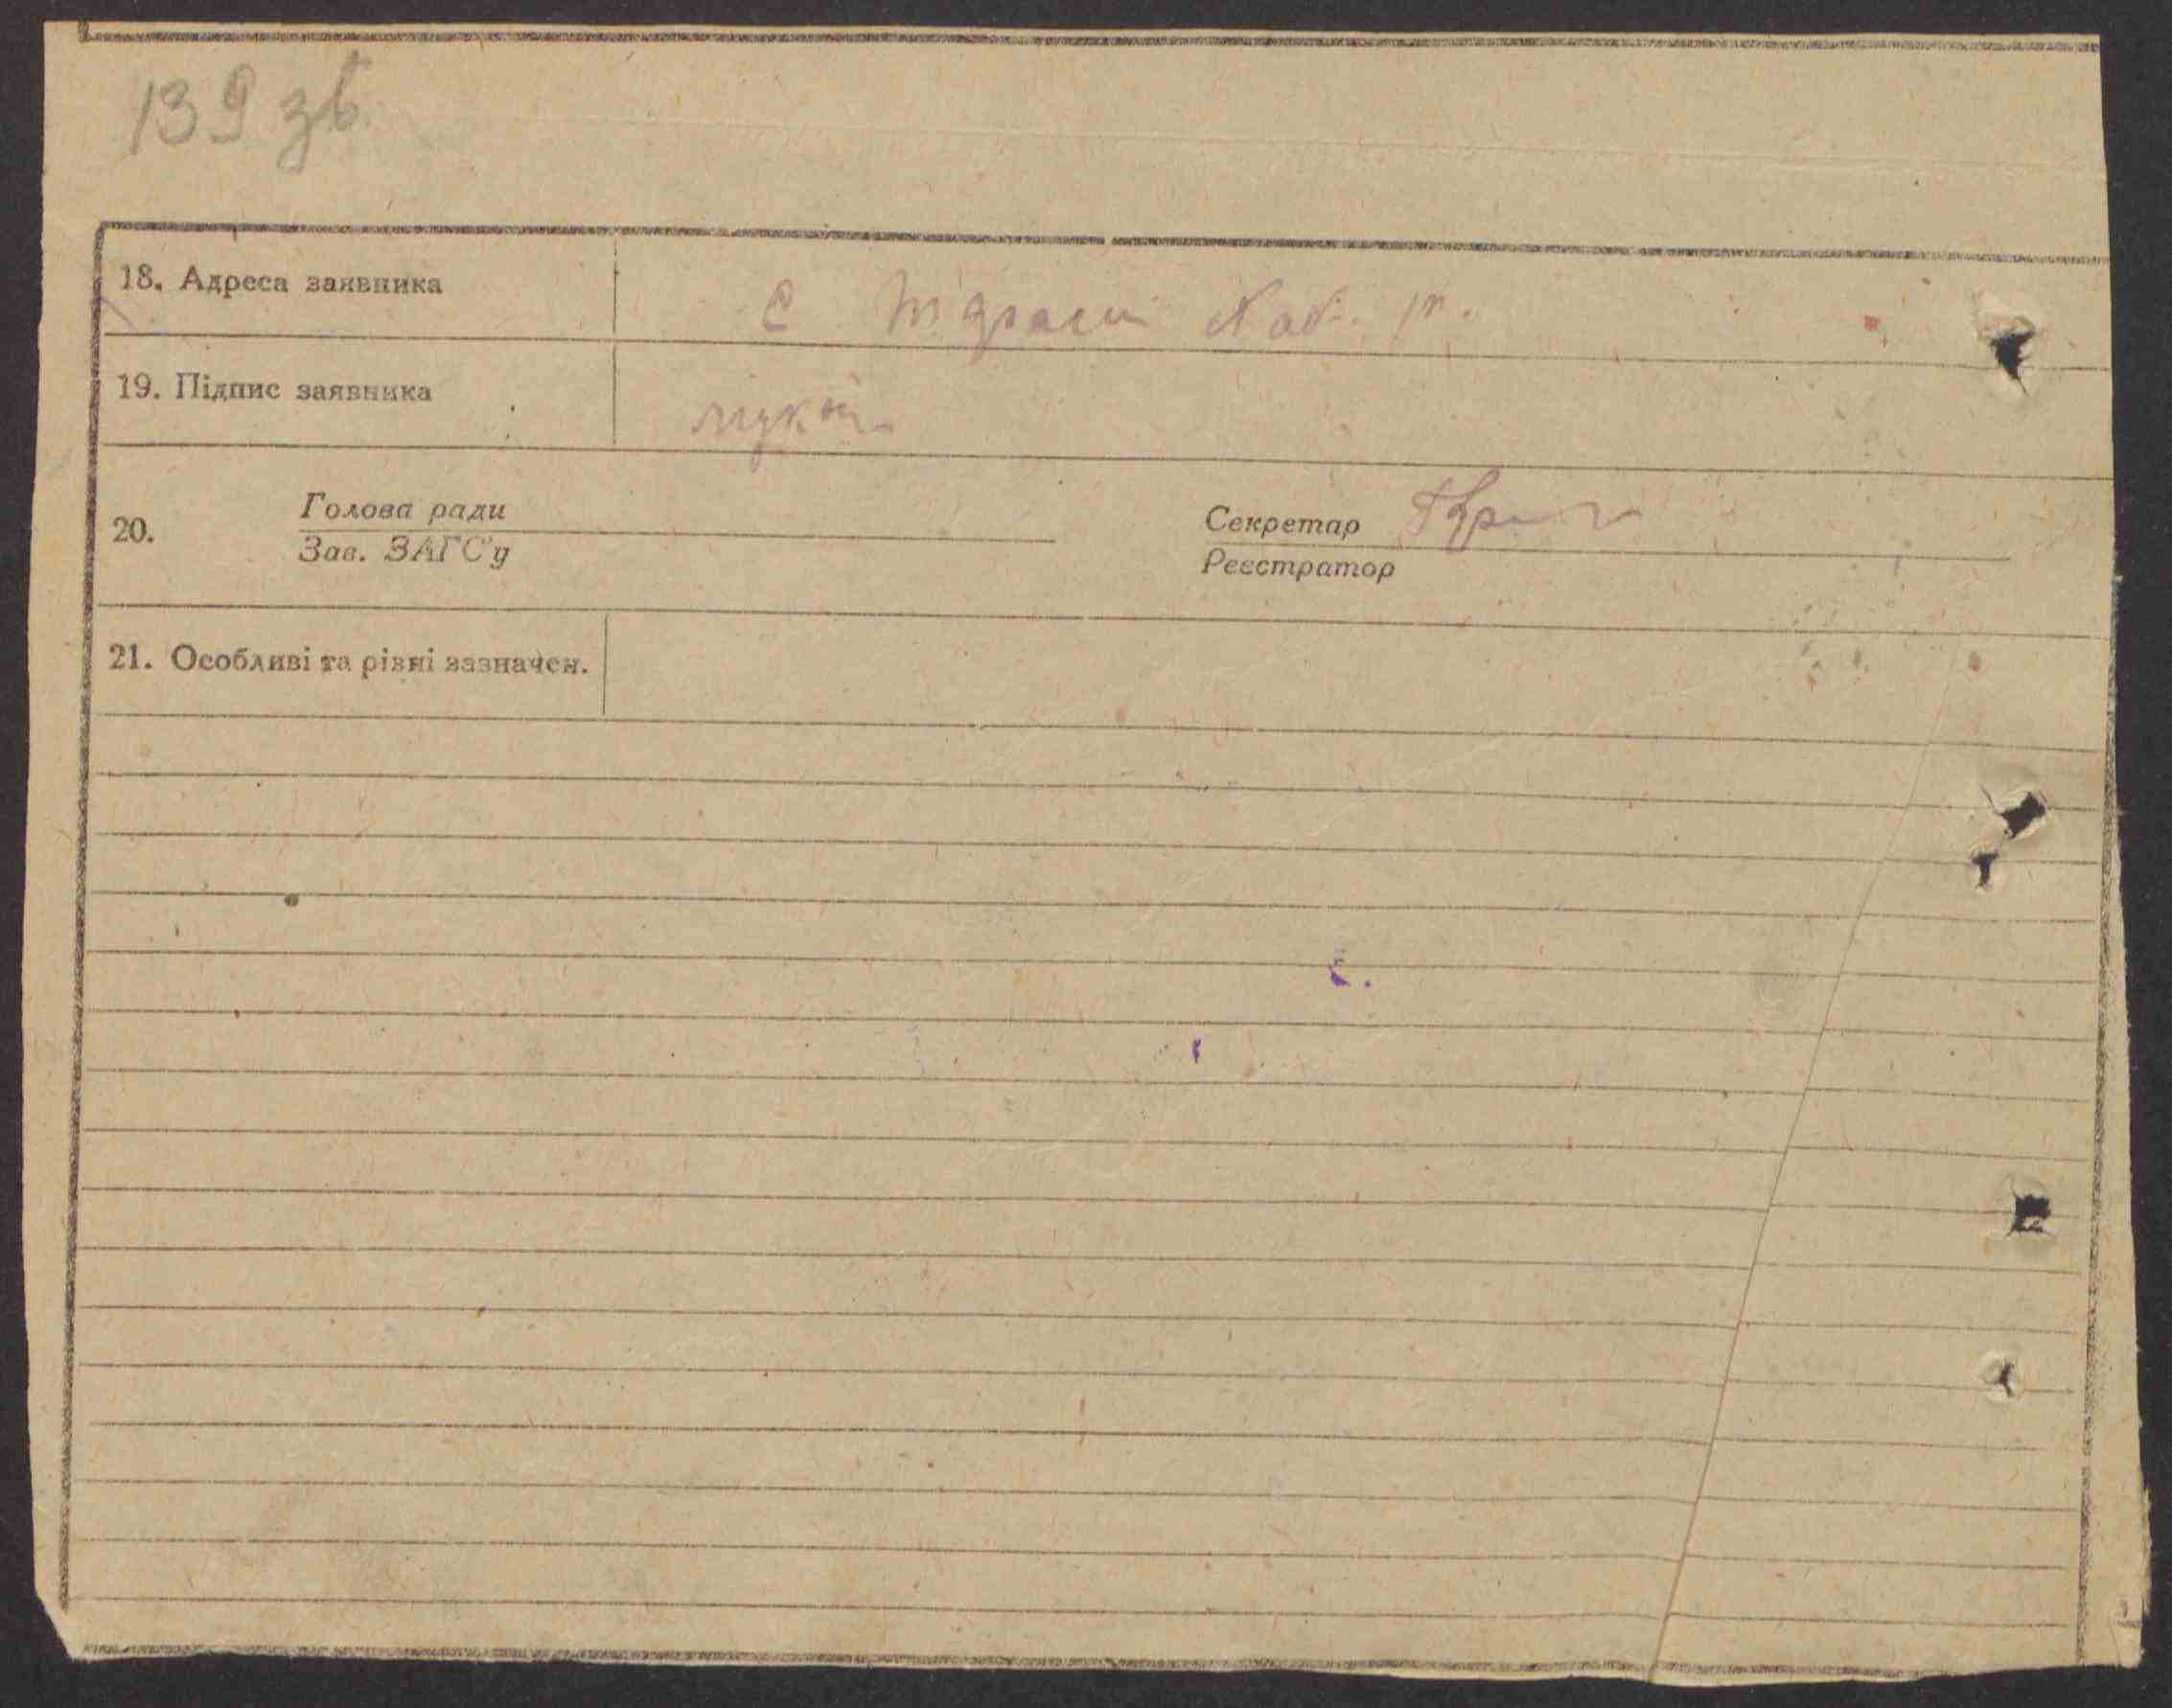 139 зв.
18. Адреса заявника
с
19. Підпис заявника
20. Голова ради
Зав. ЗАГС'у
Секретар
Реєстратор
21. Особливі та різні зазначен.